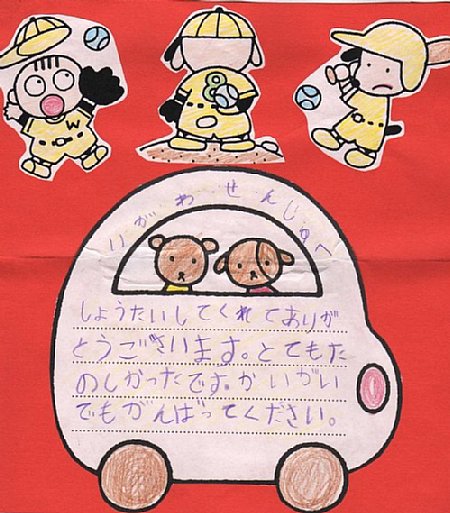 W
8
いがわせんしゅへ
しょうたいしてくれてありが
とうございます。とてもた
のしかったです。かいがい
でもがんばってください。